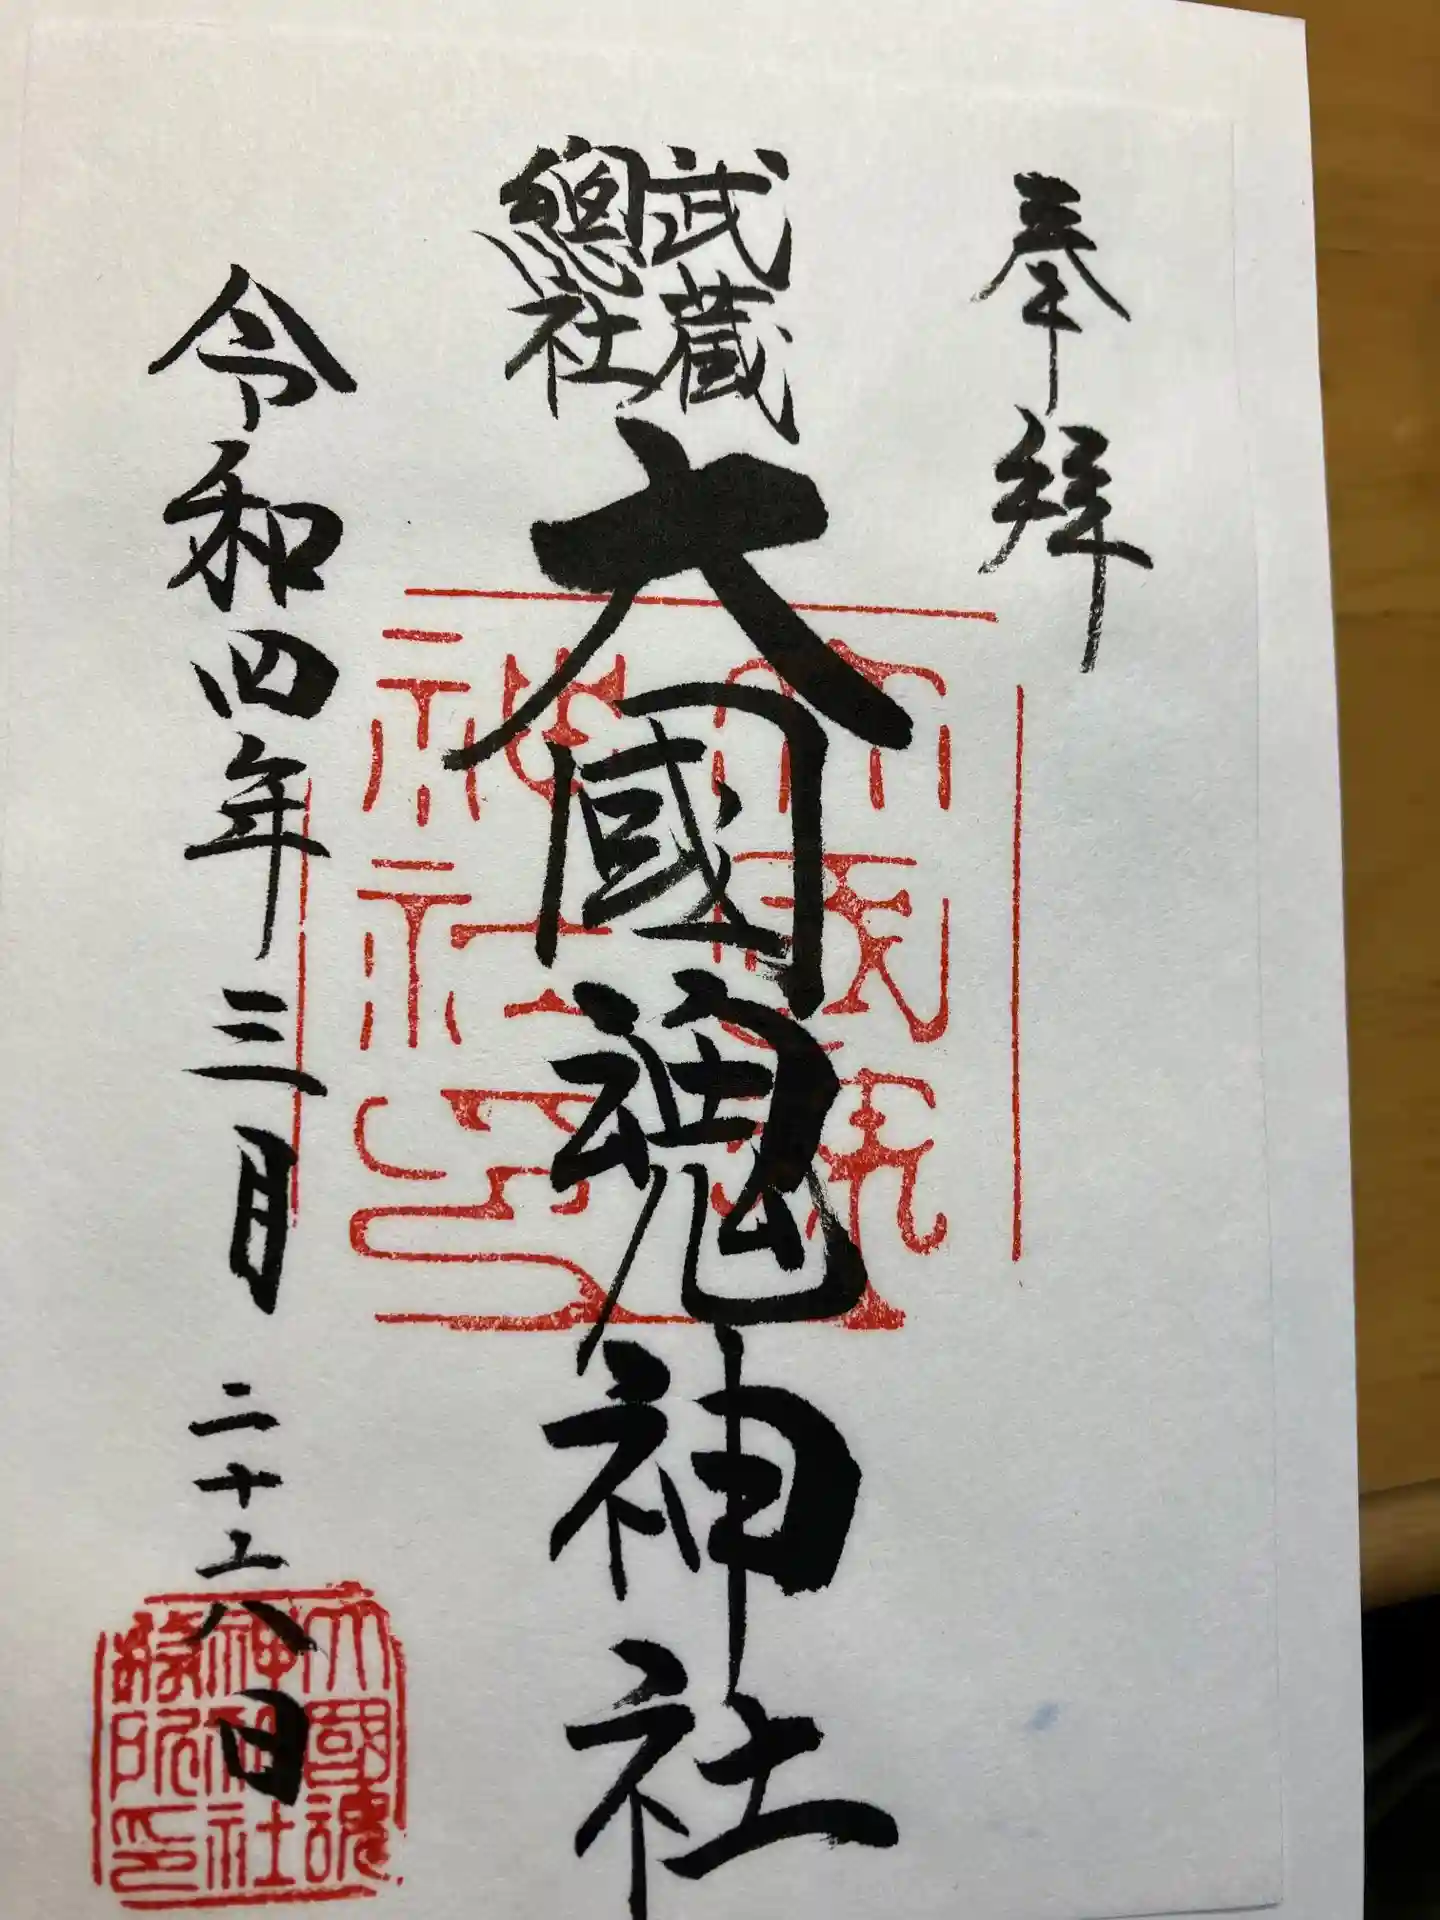 奉拝
武蔵
總社
大國魂神社
令和四年三月二十六日
大國魂
神社
務所印